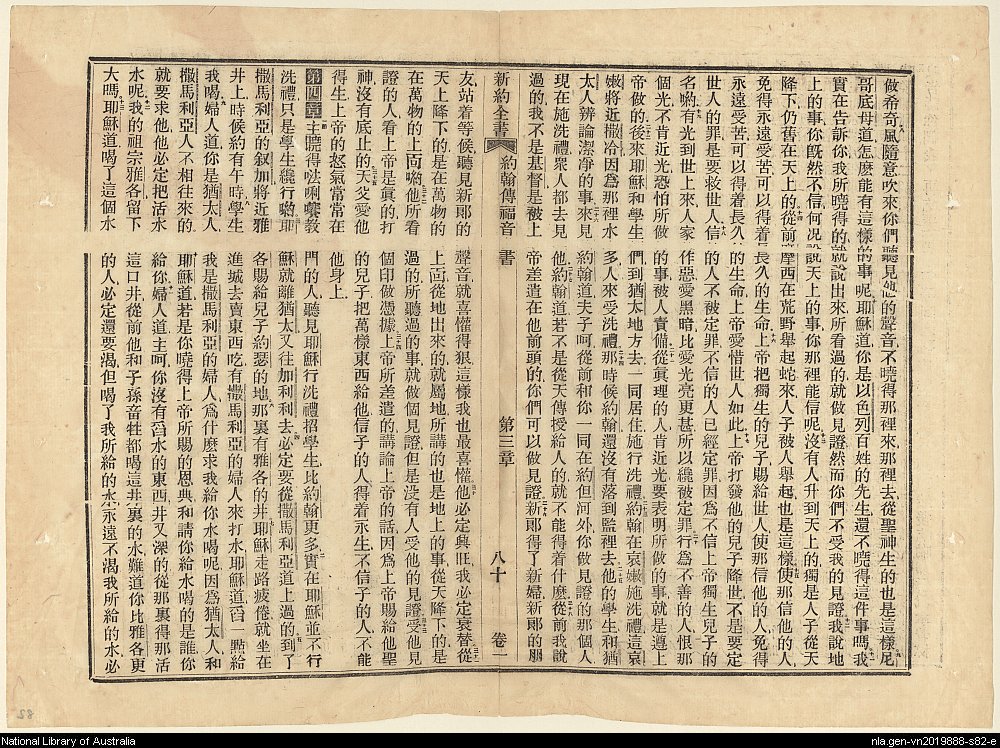 做希奇風隨意吹來你們聽見他的聲音不曉得那裡來那裡去從聖神生的也是這樣尼
哥底母道怎麽能有這樣的事呢耶穌道你是以色列百姓的先生還不曉得這件事嗎我
實在告訴你我所曉得的就說出來所看過的就做見證然而你們不受我的見證我說地
上的事你旣然不信何况說天上的事你那裡能信呢沒有人升到天上的獨是人子從天
降下仍舊在天上的從前摩西在荒野舉起蛇來人子被人舉起也是這樣使那信他的人
免得永遠受苦可以得着長久的生命上帝把獨生的兒子賜給世人使那信他的人免得
永遠受苦可以得着長久的生命上帝愛惜世人如此上帝打發他的兒子降世不是要定
世人的罪是要救世人信的人不被定罪不信的人已經定罪因爲不信上帝獨生兒子的
名喲有光到世上來人家作惡愛黑暗比愛光亮更甚所以纔被定罪行爲不善的人恨那
個光不肯近光恐怕所做的事被人責備從眞理的人肯近光要表明所做的事就是遵上
帝做的後來耶穌和學生們到猶太地方去一同居住施行洗禮約翰在哀嫩施洗禮這哀
嫩將近撒冷因爲那裡水多人來受洗禮那時候約翰還沒有落到監裡去他的學生和猶
太人辨論潔凈的事來見約翰道夫子呵從前和你一同在約但河外你做見證的那個人
現在施洗禮衆人都去見他約翰道若不是從天傳授給人的就不能得着什麽從前我說
過的我不是基督是被上帝差遣在他前頭的你們可以做見證新郞得了新婦新郞的朋
新約全書 約翰傳福音書 第三章 八十 卷一
友站着等候聽見新郞的聲音就喜懽得狠這樣我也最喜懽他必定興旺我必定衰替從
天上降下的是在萬物的上面從地出來的就屬地所講的也是地上的事從天降下的是
在萬物的上面喲他所看過的所聽過的事就做個見證但是沒有人受他的見證受他見
證的人看上帝是眞的打個印做憑據上帝所差遣的講論上帝的話因爲上帝賜給他聖
神沒有底止的天父愛他的兒子把萬樣東西給他信子的人得着永生不信子的人不能
得生上帝的怒氣常常在他身上
第四章 主曉得𠵽唎𡂼教門的人聽見耶穌行洗禮招學生比約翰更多實在耶穌並不行
洗禮只是學生纔行喲耶穌就離猶太又往加利利去必定要從撒馬利亞道上過的到了
撒馬利亞的叙加將近雅各賜給兒子約瑟的地那裏有雅各的井耶穌走路疲倦就坐在
井上時候約有午時學生進城去賣東西吃有撒馬利亞的婦人來打水耶穌道舀一點給
我喝婦人道你是猶太人我是撒馬利亞的婦人爲什麽求我給你水喝呢因爲猶太人和
撒馬利亞人不相往來的耶穌道若是你曉得上帝所賜的恩典和請你給水喝的是誰你
就要求他他必定把活水給你婦人道主呵你沒有舀水的東西井又深的從那裏得那活
水呢我的祖宗雅各留下這口井從前他和子孫畜牲都喝這井裏的水難道你比雅各更
大嗎耶穌道喝了這個水的人必定還要渴但喝了我所給的水永遠不渴我所給的水必
82
National Library of Australia
nla.gen-vn2019888-s82-e